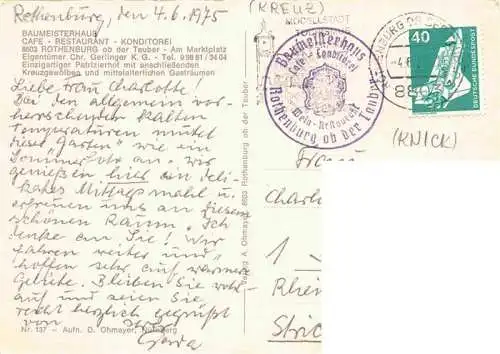 Rothenburg, den 4.6.1975
BAUMEISTERHAUS
CAFE - RESTAURANT - KONDITOREI
8803 ROTHENBURG ob der Tauber - Am Marktplatz
Eigentümer Chr. Gerlinger K. G. - Tel. 9 98 81 / 34 04
Einzigartiger Patrizierhof mit anschließenden
Kreuzgewölben und mittelalterlichen Gasträumen
Liebe Frau Charlotte!
Bei den allgemein vor-
herrschenden kalten
Temperaturen mutet
dieser "Garten" wie ein
Sommerfoto an. Wir
genießen hier ein deli-
kates Mittagsmahl u.
erfreuen uns an diesem
schönen Raum. Ich
denke an Sie! Wir
fahren weiter und
hoffen sehr auf wärmere
Gebiete. Bleiben Sie wohl-
auf und seien Sie
recht herzlich gegrüßt
von Ihrer
Gerda
Nr. 137 - Aufn. D. Ohmayer, Nürnberg
Verlag A. Ohmayer, 8803 Rothenburg ob der Tauber
(KREUZ)
MODELSTADT
Baumeisterhaus
Cafe Konditorei
Wein-Restaurant
Rothenburg ob der Tauber
40
DEUTSCHE BUNDESPOST
(KNICK)
Frau
Charl
1
Rhei
Stric